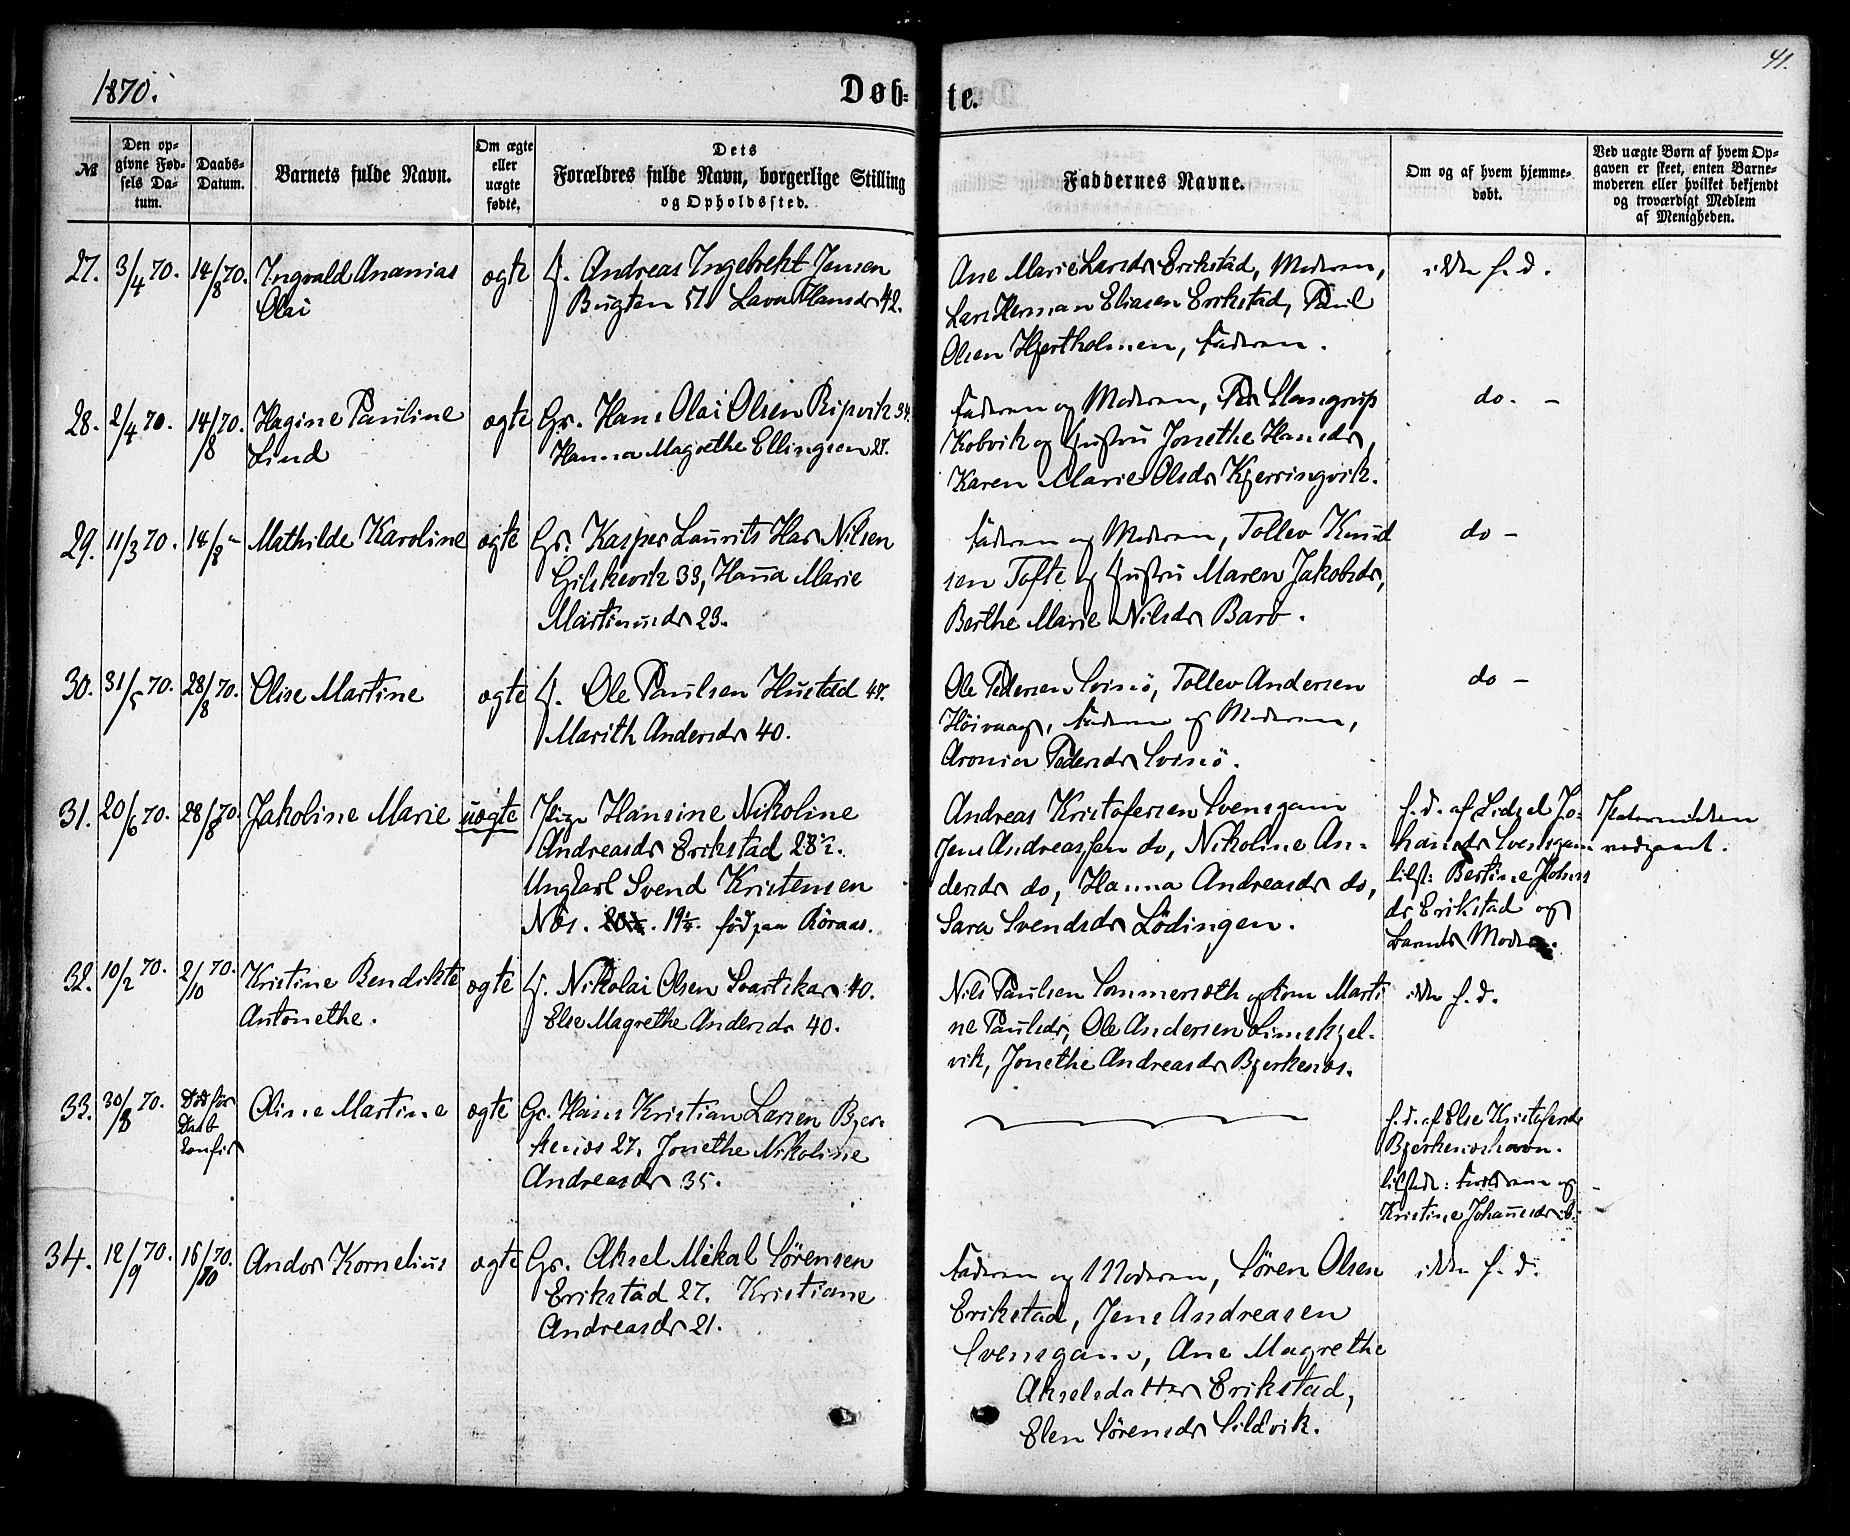 1870.
Døb-
te.
41.
№
Den op-
givne Fød-
sels Da-
tum.
Daabs-
Datum.
Barnets fulde Navn.
Om ægte
eller
uægte
fødte.
Dets
Forældres fulde Navn, borgerlige Stilling
og Opholdssted.
Faddernes Navne.
Om og af hvem hjemme-
døbt.
Ved uægte Børn af hvem Op-
gaven er skeet, enten Barne-
moderen eller hvilket bekjendt
og troværdigt Medlem
af Menigheden.
27. 3/4 70. 14/8 70. Ingvald Ananias
Olai
ægte
Andreas Ingebrekt Jensen
Bugten 51 Lava Hansdr 42.
Ane Marie Larsdr Erikstad, Moderen,
Lars Herman Eliasen Erikstad, Paul
Olsen Hjertholmen, Faderen.
ikke h. d.
28. 2/4 70. 14/8 70. Hagine Pauline
Lind
ægte
Gr. Hans Olai Olsen Ripvik 34.
Hanna Magrethe Ellingsen 27.
Faderen og Moderen, Stamgrup
Kobvik og Hustru Jonethe Hansdr,
Karen Marie Olsdr Kjerringvik.
do. -
29. 11/3 70. 14/8 " Mathilde Karoline
ægte
Gr. Kasper Laurits Har Nilsen
Gilskevik 33, Hanna Marie
Martinusdr 23.
Faderen og Moderen, Tollev Knud
sen Tofte og Hustru Maren Jakobsdr,
Berthe Marie Nilsdr Barø.
do -
30. 31/5 70. 28/8 70. Olise Martine
ægte
Ole Paulsen Hustad 47.
Marith Andersdr 40.
Ole Pedersen Svinø, Tollev Andersen
Høivaag, Faderen og Moderen,
Aronia Pedersdr Svinø.
do -
31. 20/6 70. 28/8 70. Jakoline Marie
uægte
Pige Hansine Nikoline
Andreasdr Erikstad 28½.
Ungkarl Svend Kristensen
Næs. 19½. fød paa Röraas.
Andreas Kristofersen Svensgam
Jens Andreassen do, Nikoline An-
dersdr do, Hanna Andreasdr do,
Sara Svendsdr Lödingen.
h. d. af Sidsel Jo-
hansdr Svensgam
tilst: Bertine Johns
dr Erikstad og
Barnets Moder.
Paterniteten
vedgaaet.
32. 10/2 70. 2/10 70. Kristine Bendikte
Antonethe.
ægte
Nikolai Olsen Svartskar 40.
Else Magrethe Andersdr 40.
Nils Paulsen Sommersæth og Kone Marti
ne Paulsdr, Ole Andersen Simskjel-
vik, Jonethe Andreasdr Bjerkenæs.
ikke h. d.
33. 30/8 70. Död för
Daab
konfir
Oline Martine
ægte
Gr. Hans Kristian Larsen Bjer-
kenæs 27. Jonethe Nikoline
Andreasdr 35.
h. d. af Else Kristofersdr
Bjerkenæshavn.
tilstede: Forældrene og
Kristine Johannsdr
34. 12/9 70. 16/10 70. Andor Kornelius
ægte
Gr. Aksel Mekal Sörensen
Erikstad 27. Kristiane
Andreasdr 21.
Faderen og Moderen, Sören Olsen
Erikstad, Jens Andreasen
Svensgam, Ane Magrethe
Akselsdatter Erikstad,
Elen Sörensdr Sildvik.
ikke h. d.